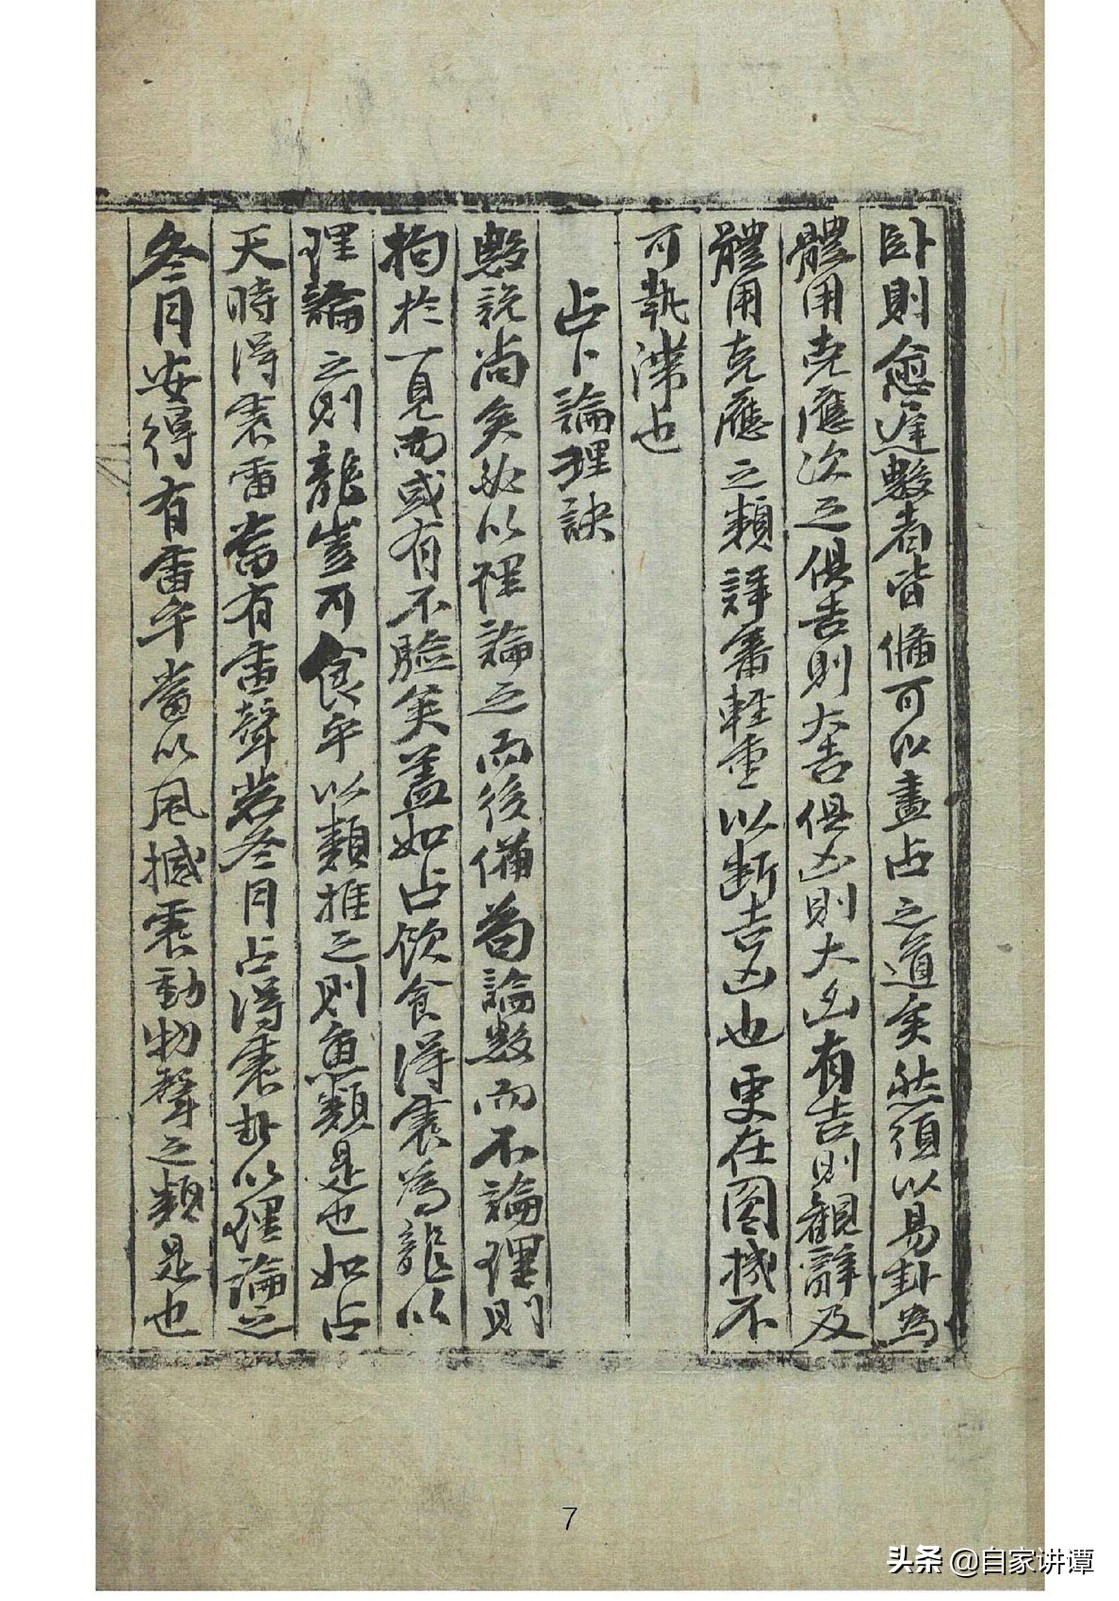 卧則愈遲數者皆備可以盡占之道矣然須以易卦為
體用克應次之俱吉則大吉俱凶則大凶有吉則觀辭及
體用克應之類詳審輕重以断吉凶也更在圓機不
可執滯也
占卜論理訣
數說尚矣必以理論之而後備苟論數而不論理則
拘於一見而或有不驗矣盖如占飲食得震為龍以
理論之則龍豈可食乎以類推之則魚類是也如占
天時得震雷當有雷聲若冬月占得震卦以理論之
冬月安得有雷乎當以風撼震動物聲之類是也
7
头条 @自家讲谭